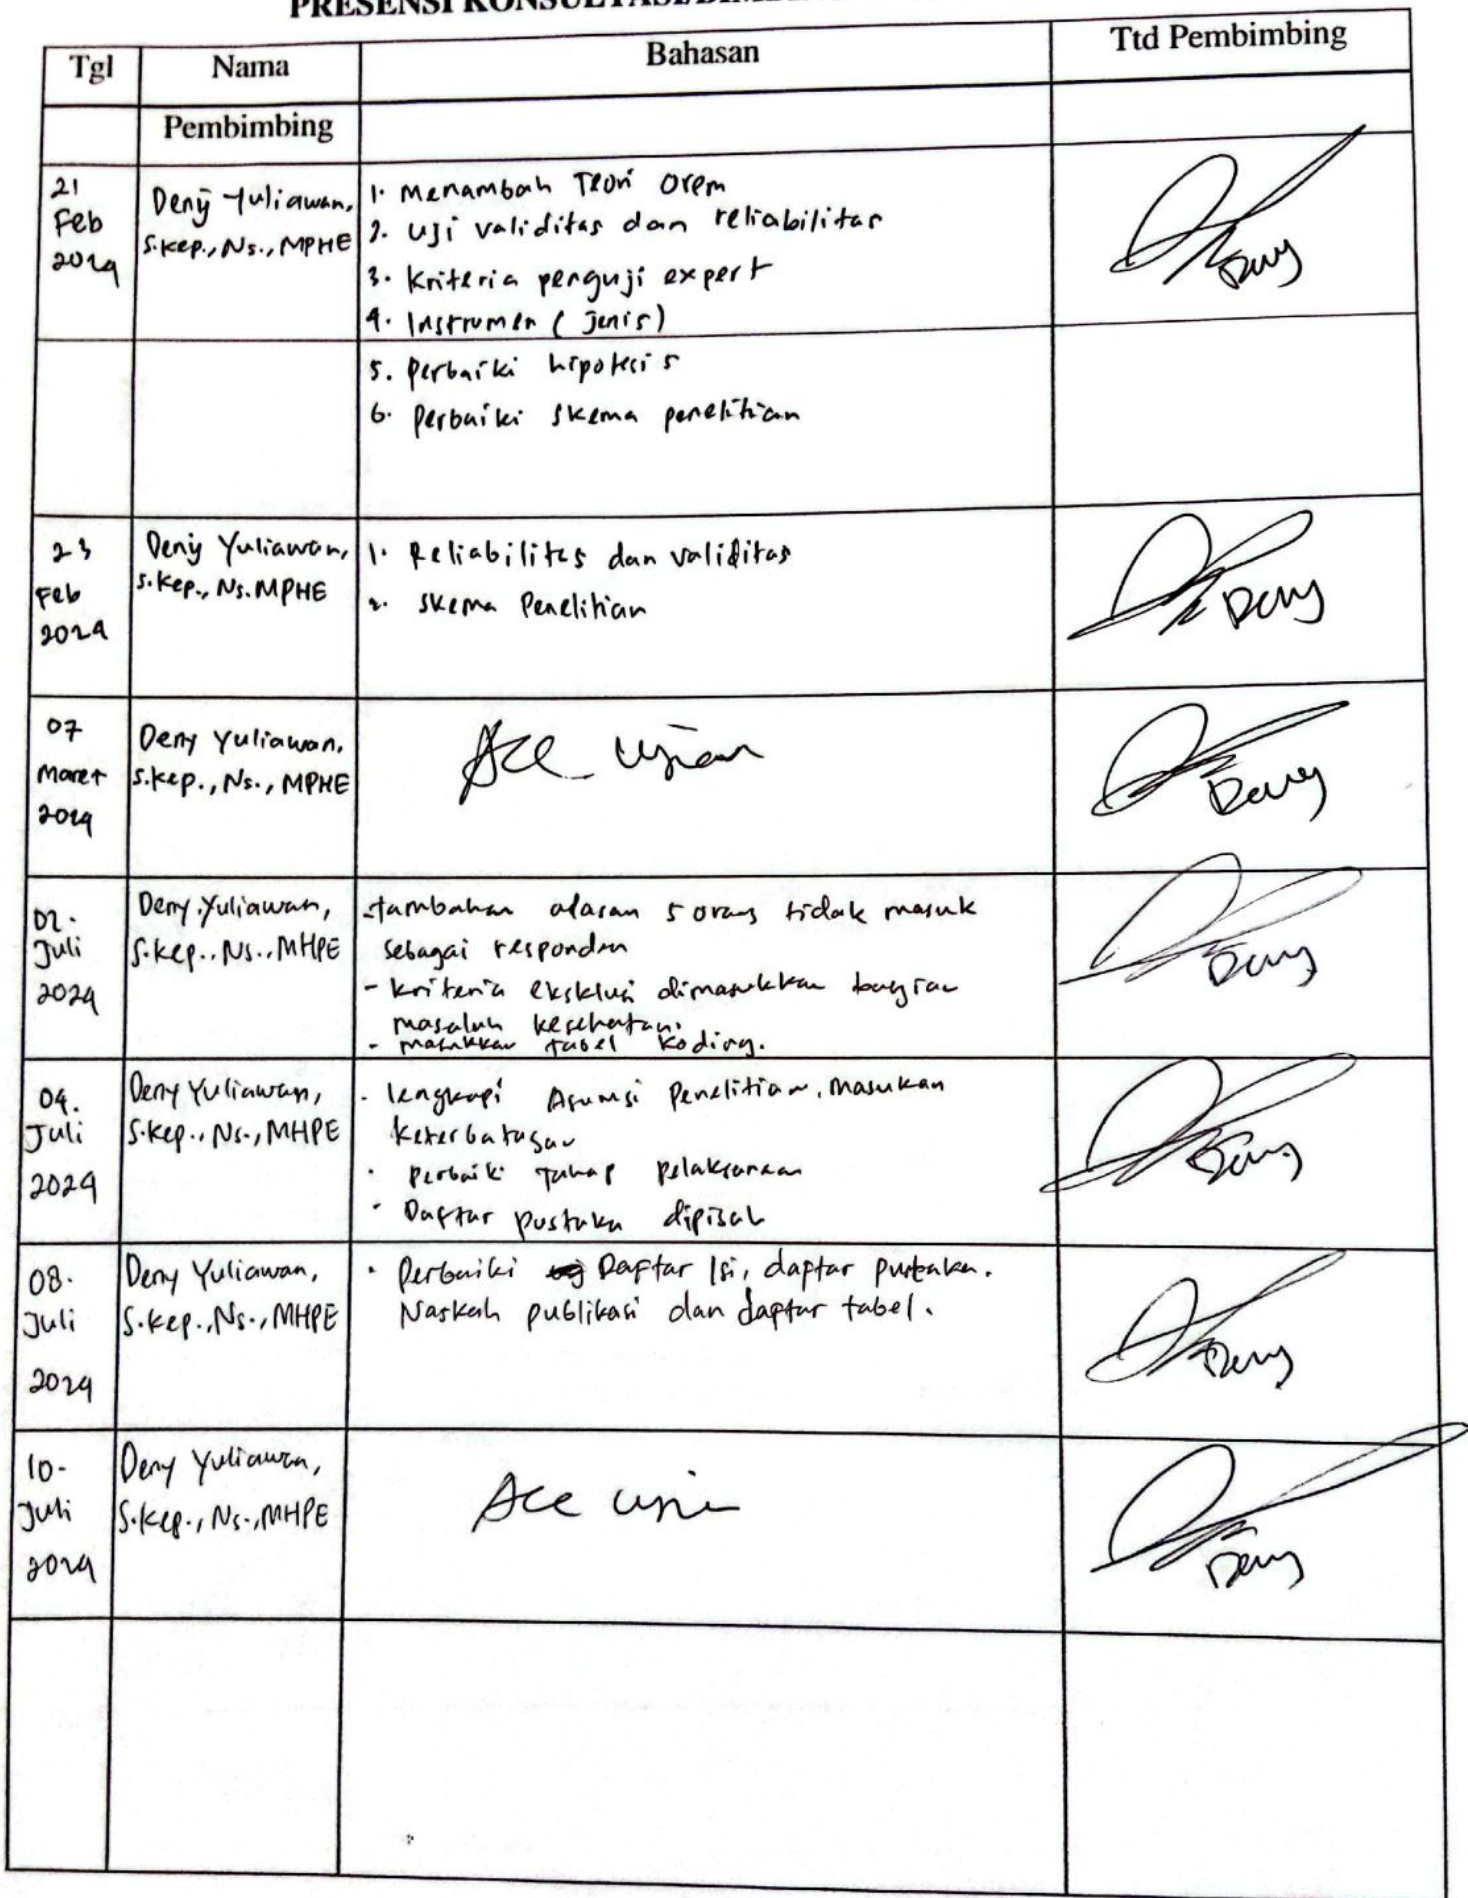 PRESENSI KONSULTASI/
Tgl Nama Bahasan Ttd Pembimbing
Pembimbing
21 Feb 2024
Deny Yuliawan,
S.Kep., Ns., MPHE
1. Menambah Teori Orem
2. Uji validitas dan reliabilitas
3. Kriteria penguji expert
4. Instrumen (Jenis)
Deny
5. Perbaiki hipotesis
6. Perbaiki skema penelitian
23 Feb 2024
Deny Yuliawan,
S.Kep., Ns. MPHE
1. Reliabilitas dan validitas
2. Skema Penelitian
Deny
07 Maret 2024
Deny Yuliawan,
S.Kep., Ns., MPHE
Acc Ujian
Deny
02. Juli 2024
Deny Yuliawan,
S.Kep., Ns., MHPE
- tambahan alasan 5 orang tidak masuk
sebagai responden
- kriteria eksklusi dimasukkan bagian
masalah kesehatan.
- masukkan tabel koding.
Deny
04. Juli 2024
Deny Yuliawan,
S.Kep., Ns., MHPE
- lengkapi Asumsi Penelitian, masukan
keterbatasan
· Perbaiki Tahap pelaksanaan
· Daftar pustaka dipisah
Deny
08. Juli 2024
Deny Yuliawan,
S.Kep., Ns., MHPE
· Perbaiki Daftar Isi, daftar pustaka.
Naskah publikasi dan daftar tabel.
Deny
10- Juli 2024
Deny Yuliawan,
S.Kep., Ns., MHPE
Acc Ujian
Deny